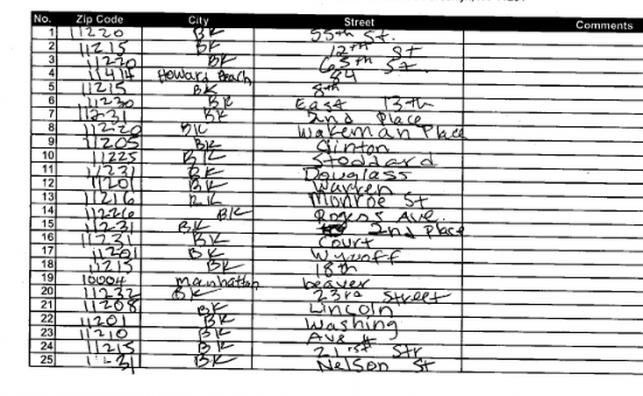 No. Zip Code City Street Comments
1 11220 BK 55th St.
2 11215 BK 12th St
3 11220 BK 65th St.
4 11414 Howard Beach 84
5 11215 BK 8th
6 11230 BK East 13th
7 11231 BK 2nd Place
8 11220 BK Wakeman Place
9 11205 BK Clinton
10 11225 BK Stoddard
11 11231 BK Douglass
12 11201 BK Warren
13 11216 BK Monroe St
14 11226 BK Rogers Ave.
15 11231 BK 2nd Place
16 11231 BK Court
17 11201 BK Wyckoff
18 11215 BK 18th
19 10004 Manhattan beaver
20 11232 BK 23rd Street
21 11208 BK Lincoln
22 11201 BK Washing
23 11210 BK Ave
24 11215 BK 21st Str
25 11231 BK Nelson St